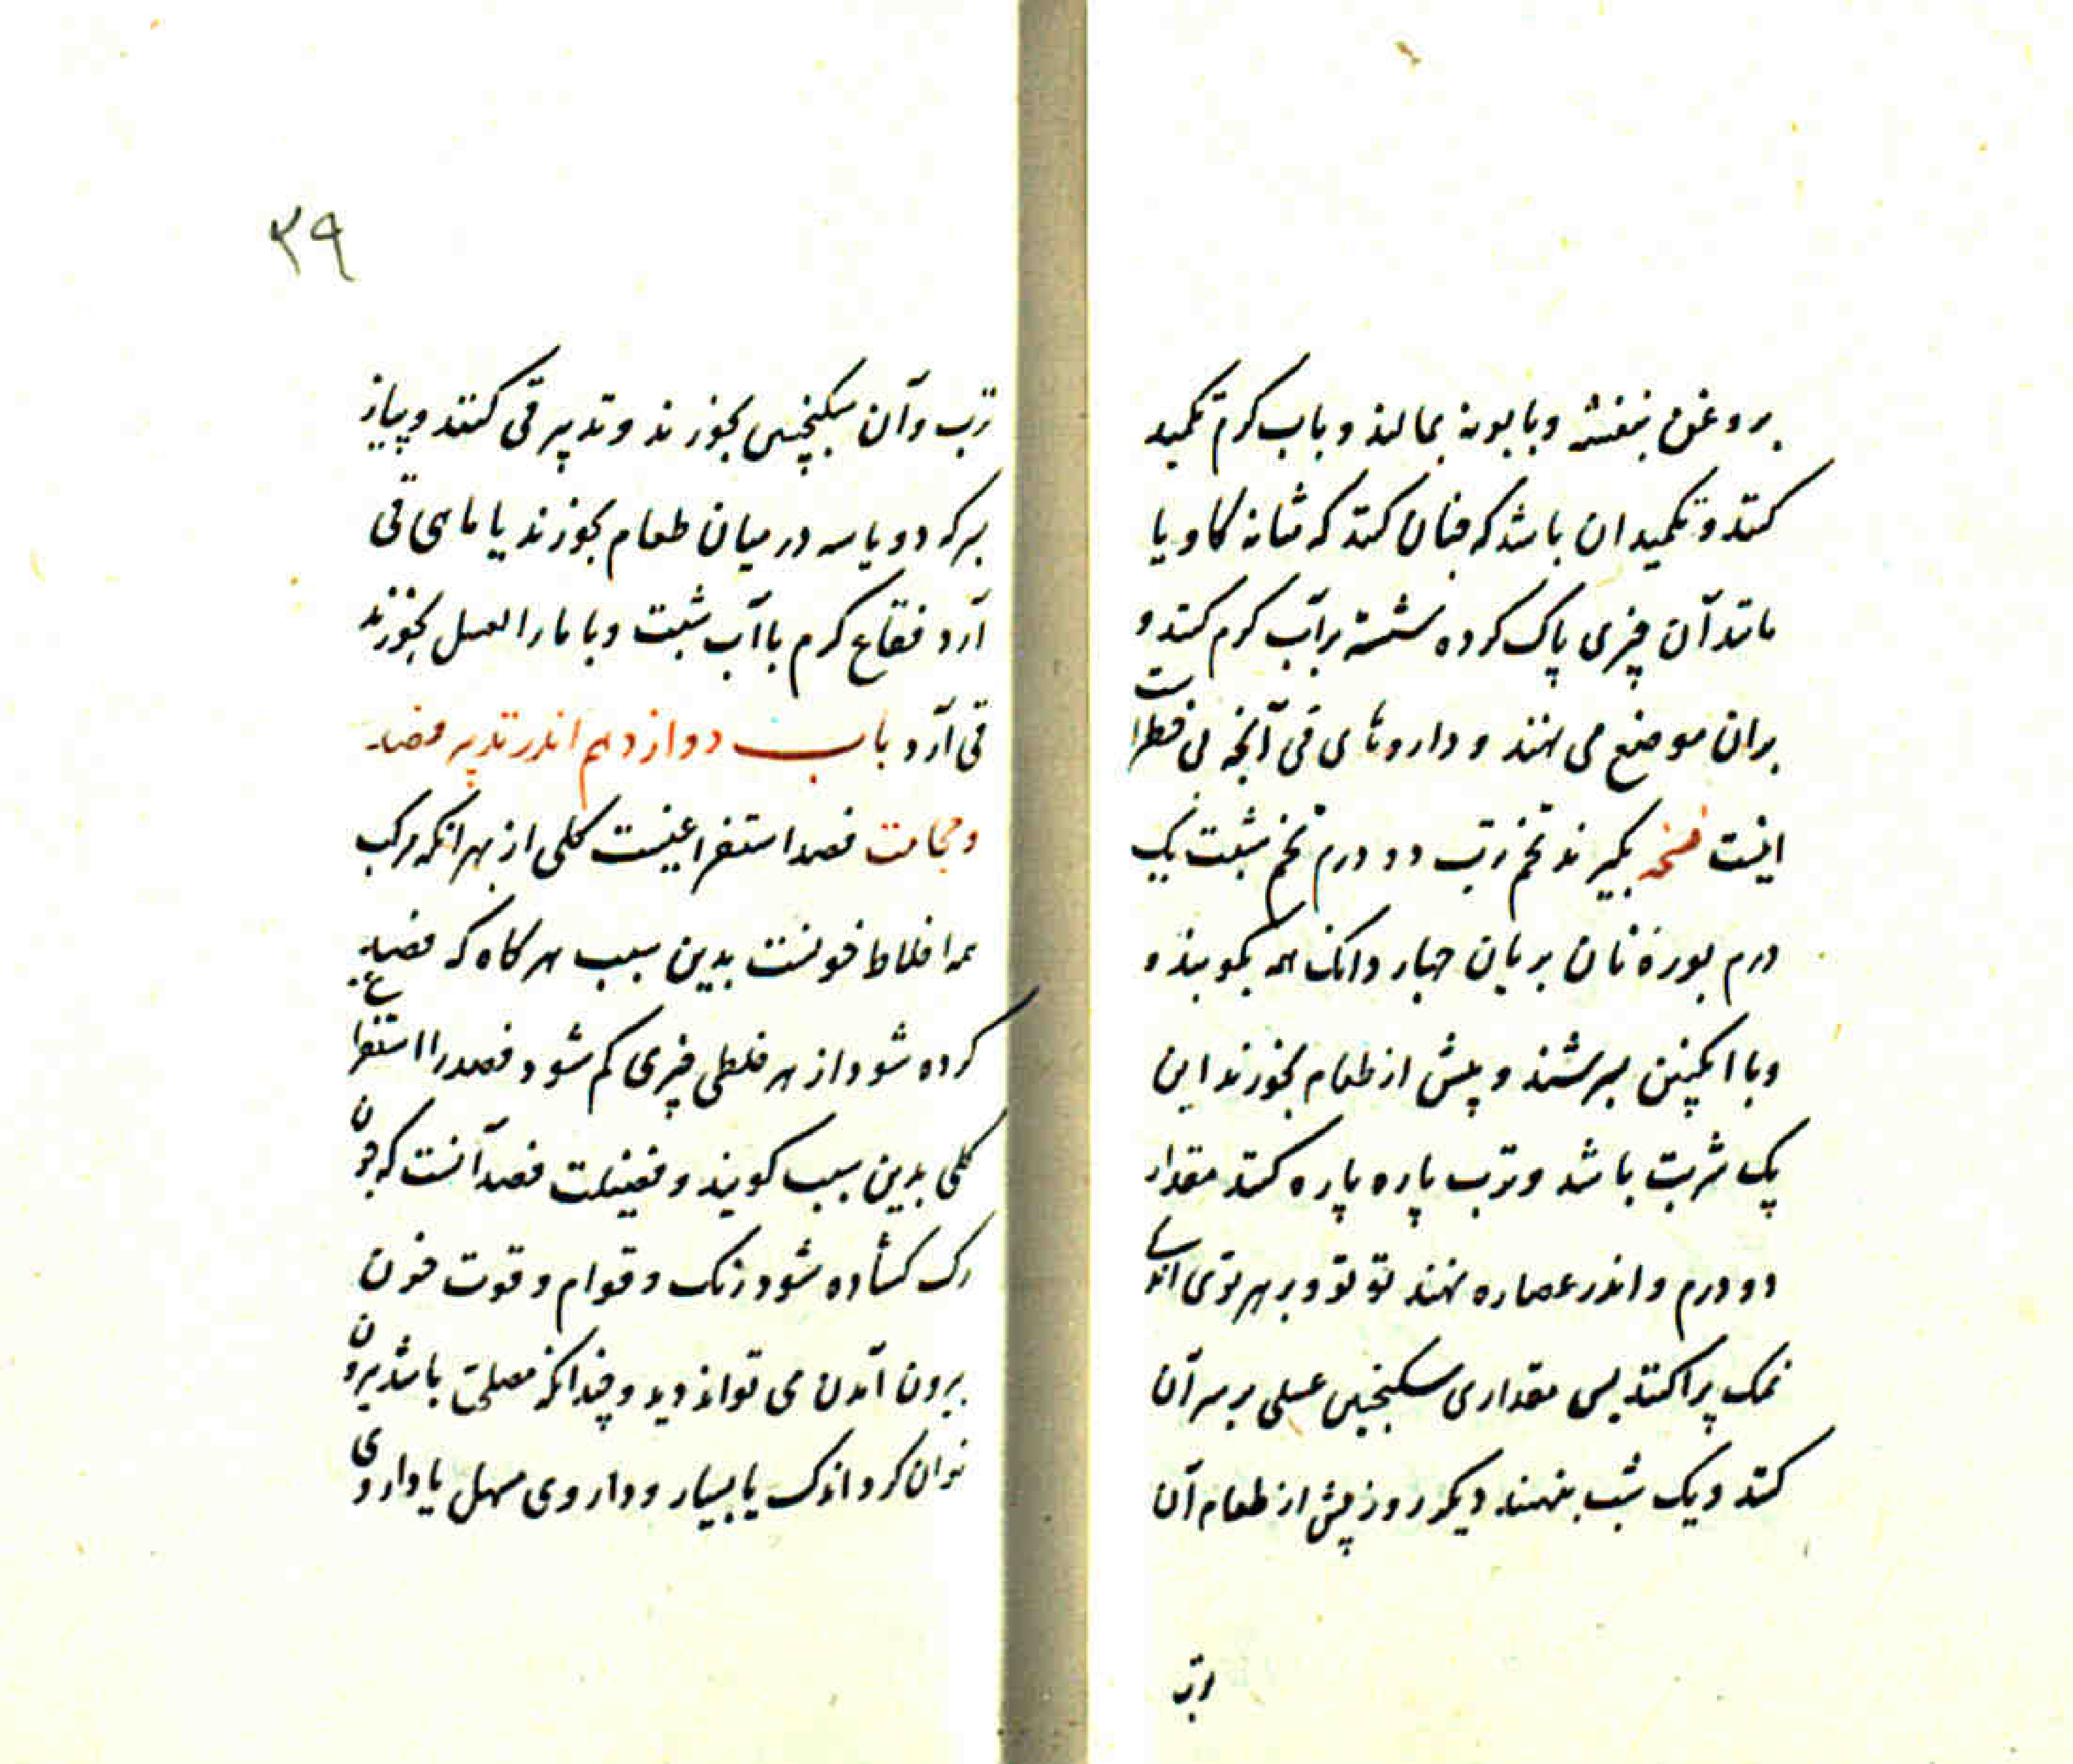 بروغن بنفشه و بابونه بمالند و باب کرم تکمید
کنند و تکمید ان باشد که چنان کنند که مثانه کاو یا
مانند آن چیزی پاک کرده شسته برآب کرم کنند و
بران موضع می نهند و داروهای قی آنچه بی خطرست
اینست نسخه بگیرند تخم ترب دو درم تخم شبت یک
درم بوره نان بریان چهار دانک همه بکوبند و
و با انکبین بسرشند و پیش از طعام بخورند این
یک شربت باشد و ترب پاره پاره کنند مقدار
دو درم و اندر عصاره نهند تو تو و بر هر توی اندکی
نمک پراکنند پس مقداری سکنجبین عسلی بر سر آن
کنند و یک شب بنهند دیکر روز پیش از طعام آن
ترب
۲۹
ترب و آن سکنجبین بخورند و تدبیر قی کنند و پیاز
بسرکه دو یا سه در میان طعام بخورند یا ماهی قی
آرد فقاع کرم با آب شبت و با ماء العسل بخورند
قی آرد باب دوازدهم اندر تدبیر فصد
و حجامت فصد استفراغیست کلی از بهر انکه مرکب
همه اخلاط خونست بدین سبب هر کاه که فصد
کرده شود از هر خلطی چیزی کم شود فصد را استفراغ
کلی بدین سبب کویند و فضیلت فصد آنست که چون
رک کشاده شود رنک و قوام و قوت خون
برون آمدن می تواند دید و چندانکه مصلحت باشد برون
توان کرد اندک یا بسیار و داروی مسهل یا داروی